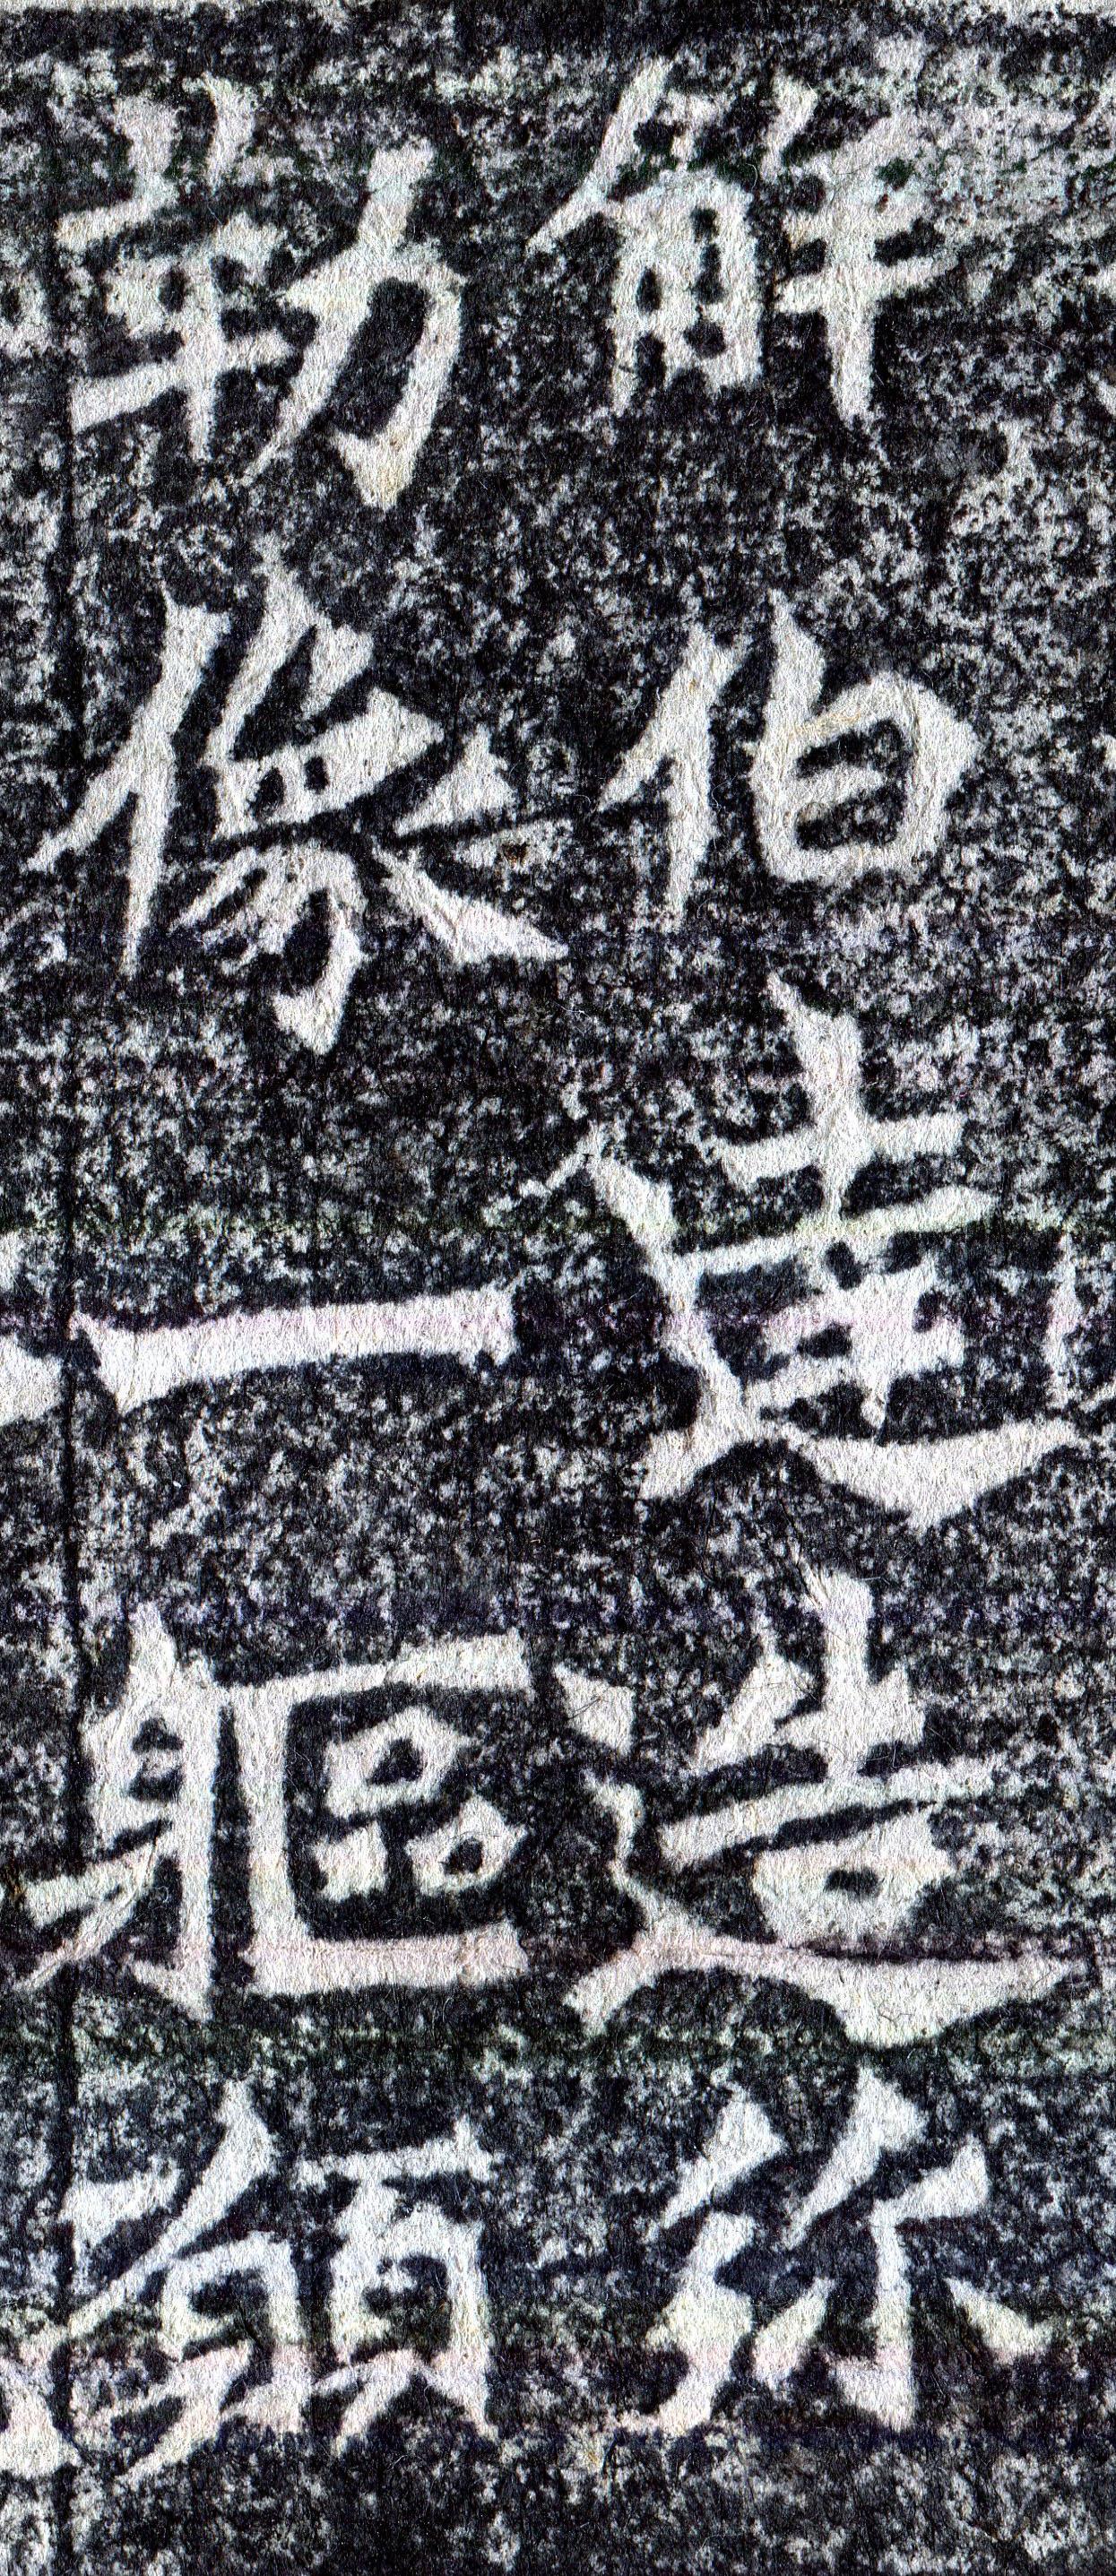 解伯達造弥
勒像一軀願